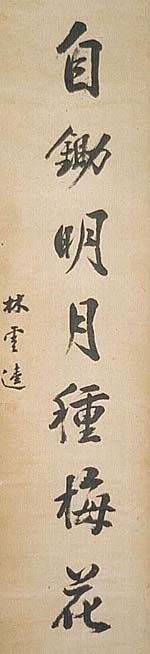 自鋤明月種梅花
林雲逵